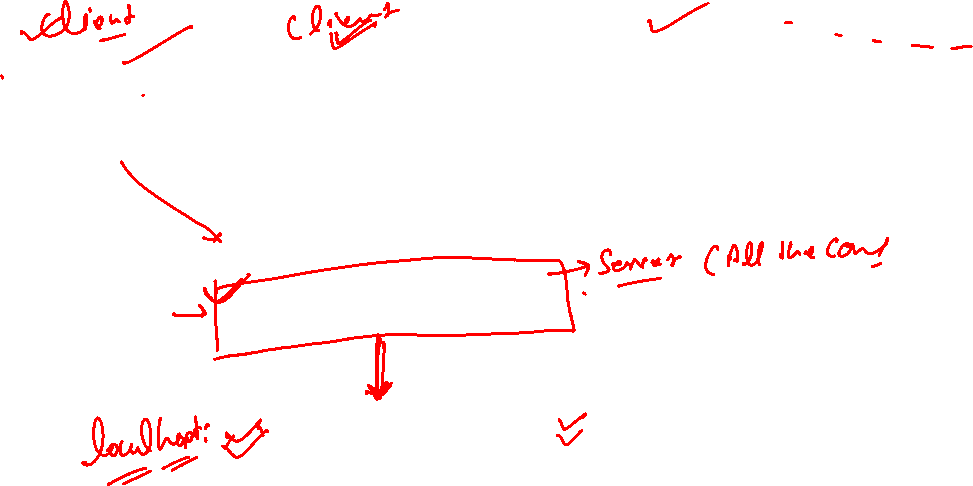 Client Client
Server (All the Cons
localhost: